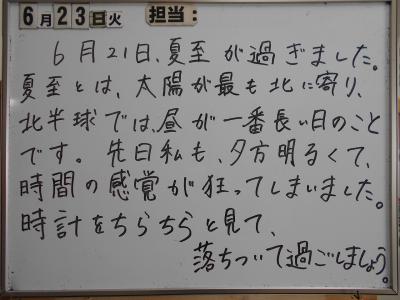 6月23日火 担当:
6月21日、夏至が過ぎました。
夏至とは、太陽が最も北に寄り、
北半球では、昼が一番長い日のこと
です。先日私も、夕方明るくて、
時間の感覚が狂ってしまいました。
時計をちらちらと見て、
落ちついて過ごしましょう。